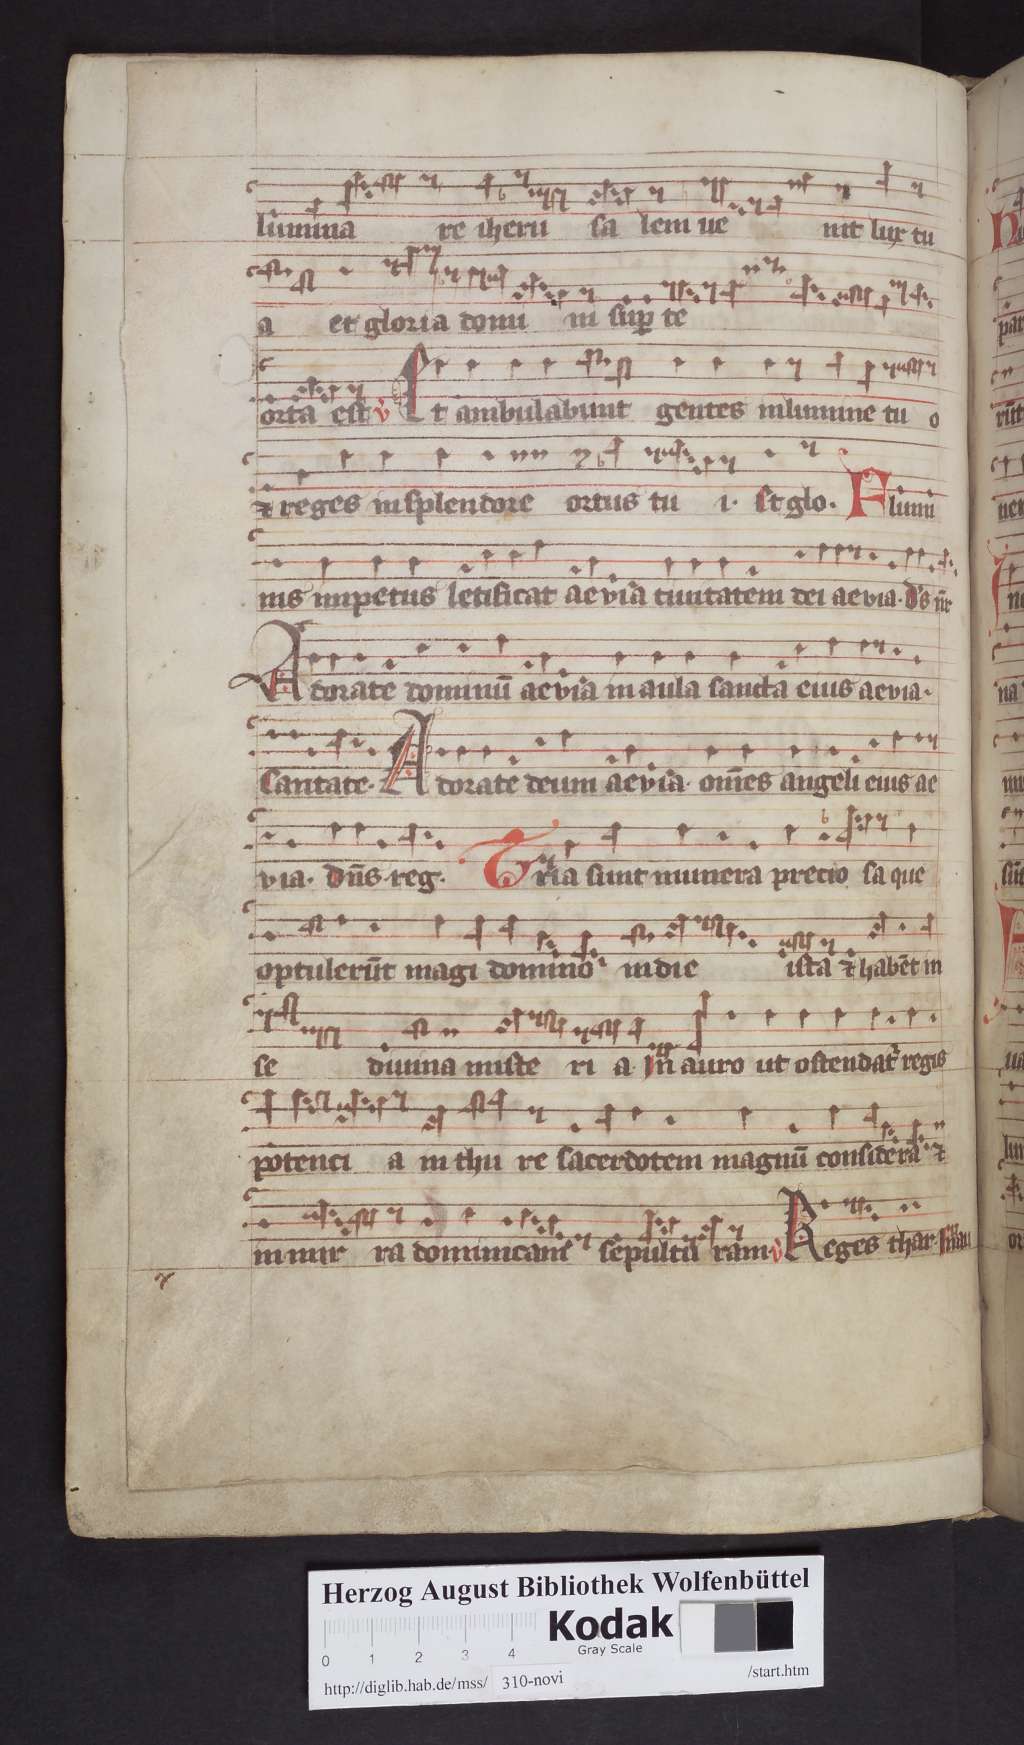 lumina re iheru sa lem ue nit lux tu
a et gloria domi ni sup te
orta est v Et ambulabunt gentes in lumine tu o
et reges in splendore ortus tu i. et glo. Flumi
nis impetus letificat aevia civitatem dei aevia. ds nr
Adorate dominū aevia in aula sancta eius aevia.
Cantate. Adorate deum aevia. omēs angeli eius ae
via. dn̄s reg. Tria sunt munera precio sa que
optulerūt magi domino in die ista et habēt in
se divina miste ri a. In auro ut ostendat̄ regis
potenci a in thu re sacerdotem magnū considera et
in mir ra dominicam sepultu ram v Reges thar
Herzog August Bibliothek Wolfenbüttel
Kodak
Gray Scale
0 1 2 3 4
http://diglib.hab.de/mss/ 310-novi /start.htm